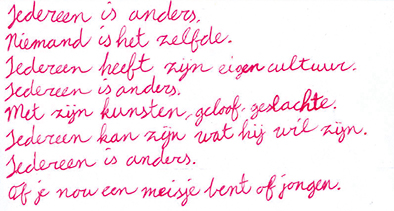 Iedereen is anders.
Niemand is het zelfde.
Iedereen heeft zijn eigen cultuur.
Iedereen is anders.
Met zijn kunsten, geloof, geslachte.
Iedereen kan zijn wat hij wil zijn.
Iedereen is anders.
Of je nou een meisje bent of jongen.